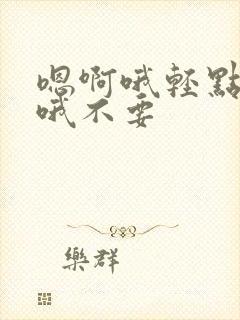 嗯啊哦轻點
哦不要
樂群